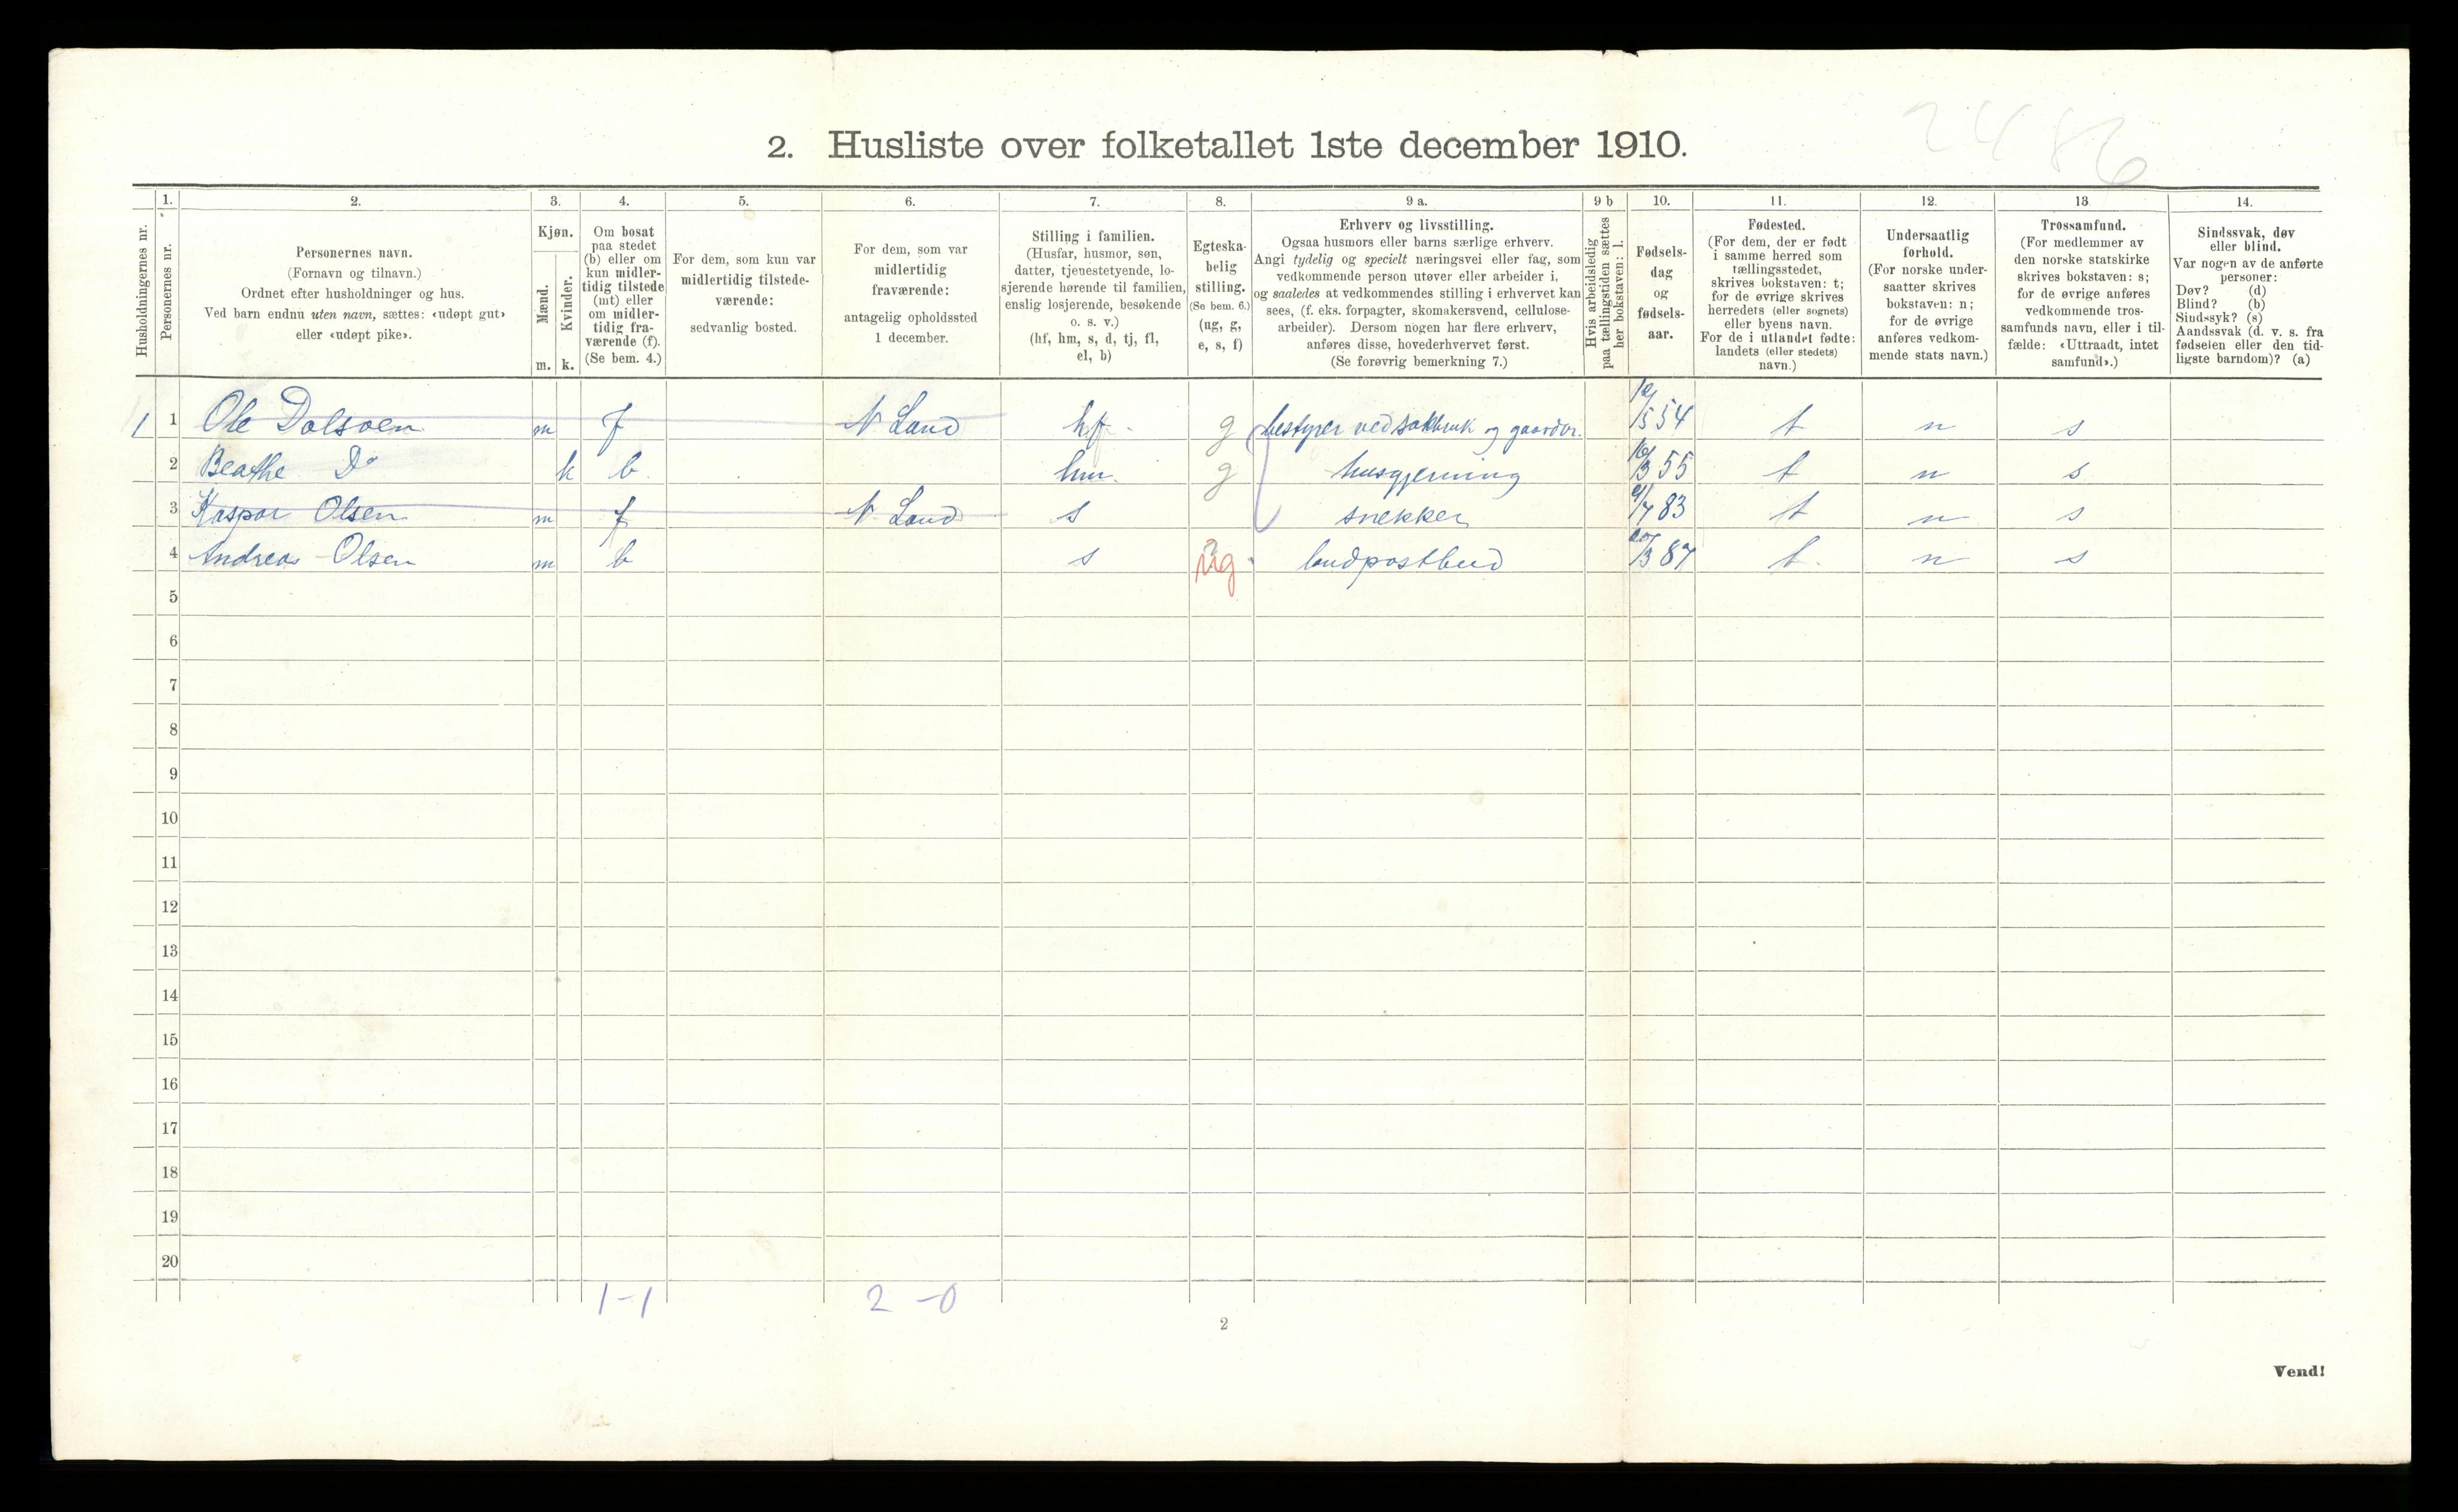 2486
2. Husliste over folketallet 1ste december 1910.
Husholdningernes nr.
1.
Personernes nr.
2.
Personernes navn.
(Fornavn og tilnavn.)
Ordnet efter husholdninger og hus.
Ved barn endnu uten navn, sættes: «udøpt gut»
eller «udøpt pike».
3.
Kjøn.
Mænd.
Kvinder.
m. k.
4.
Om bosat
paa stedet
(b) eller om
kun midler-
tidig tilstede
(mt) eller
om midler-
tidig fra-
værende (f).
(Se bem. 4.)
5.
For dem, som kun var
midlertidig tilstede-
værende:
sedvanlig bosted.
6.
For dem, som var
midlertidig
fraværende:
antagelig opholdssted
1 december.
7.
Stilling i familien.
(Husfar, husmor, søn,
datter, tjenestetyende, lo-
sjerende hørende til familien,
enslig losjerende, besøkende
o. s. v.)
(hf, hm, s, d, tj, fl,
el, b)
8.
Egteska-
belig
stilling.
(Se bem. 6.)
(ug, g,
e, s, f)
9 a.
Erhverv og livsstilling.
Ogsaa husmors eller barns særlige erhverv.
Angi tydelig og specielt næringsvei eller fag, som
vedkommende person utøver eller arbeider i,
og saaledes at vedkommendes stilling i erhvervet kan
sees, (f. eks. forpagter, skomakersvend, cellulose-
arbeider). Dersom nogen har flere erhverv,
anføres disse, hovederhvervet først.
(Se forøvrig bemerkning 7.)
9 b
Hvis arbeidsledig
paa tællingstiden sættes
her bokstaven: l.
10.
Fødsels-
dag
og
fødsels-
aar.
11.
Fødested.
(For dem, der er født
i samme herred som
tællingsstedet,
skrives bokstaven: t;
for de øvrige skrives
herredets (eller sognets)
eller byens navn.
For de i utlandet fødte:
landets (eller stedets)
navn.)
12.
Undersaatlig
forhold.
(For norske under-
saatter skrives
bokstaven: n;
for de øvrige
anføres vedkom-
mende stats navn.)
13
Trossamfund.
(For medlemmer av
den norske statskirke
skrives bokstaven: s;
for de øvrige anføres
vedkommende tros-
samfunds navn, eller i til-
fælde: «Uttraadt, intet
samfund».)
14.
Sindssvak, døv
eller blind.
Var nogen av de anførte
personer:
Døv? (d)
Blind? (b)
Sindssyk? (s)
Aandssvak (d. v. s. fra
fødselen eller den tid-
ligste barndom)? (a)
1 1 Ole Dalsveen m f N. Land hf. g bestyrer ved sakbruk og gaardbr. /5 54 t n s
2 Beathe Do k b hm. g husgjerning 16/3 55 t n s
3 Kaspar Olsen m f N. Land s snekker 9/7 83 t n s
4 Andreas Olsen m b s ug landpostbud 20/3 87 t. n s
5
6
7
8
9
10
11
12
13
14
15
16
17
18
19
20
1-1 2-0
2
Vend!